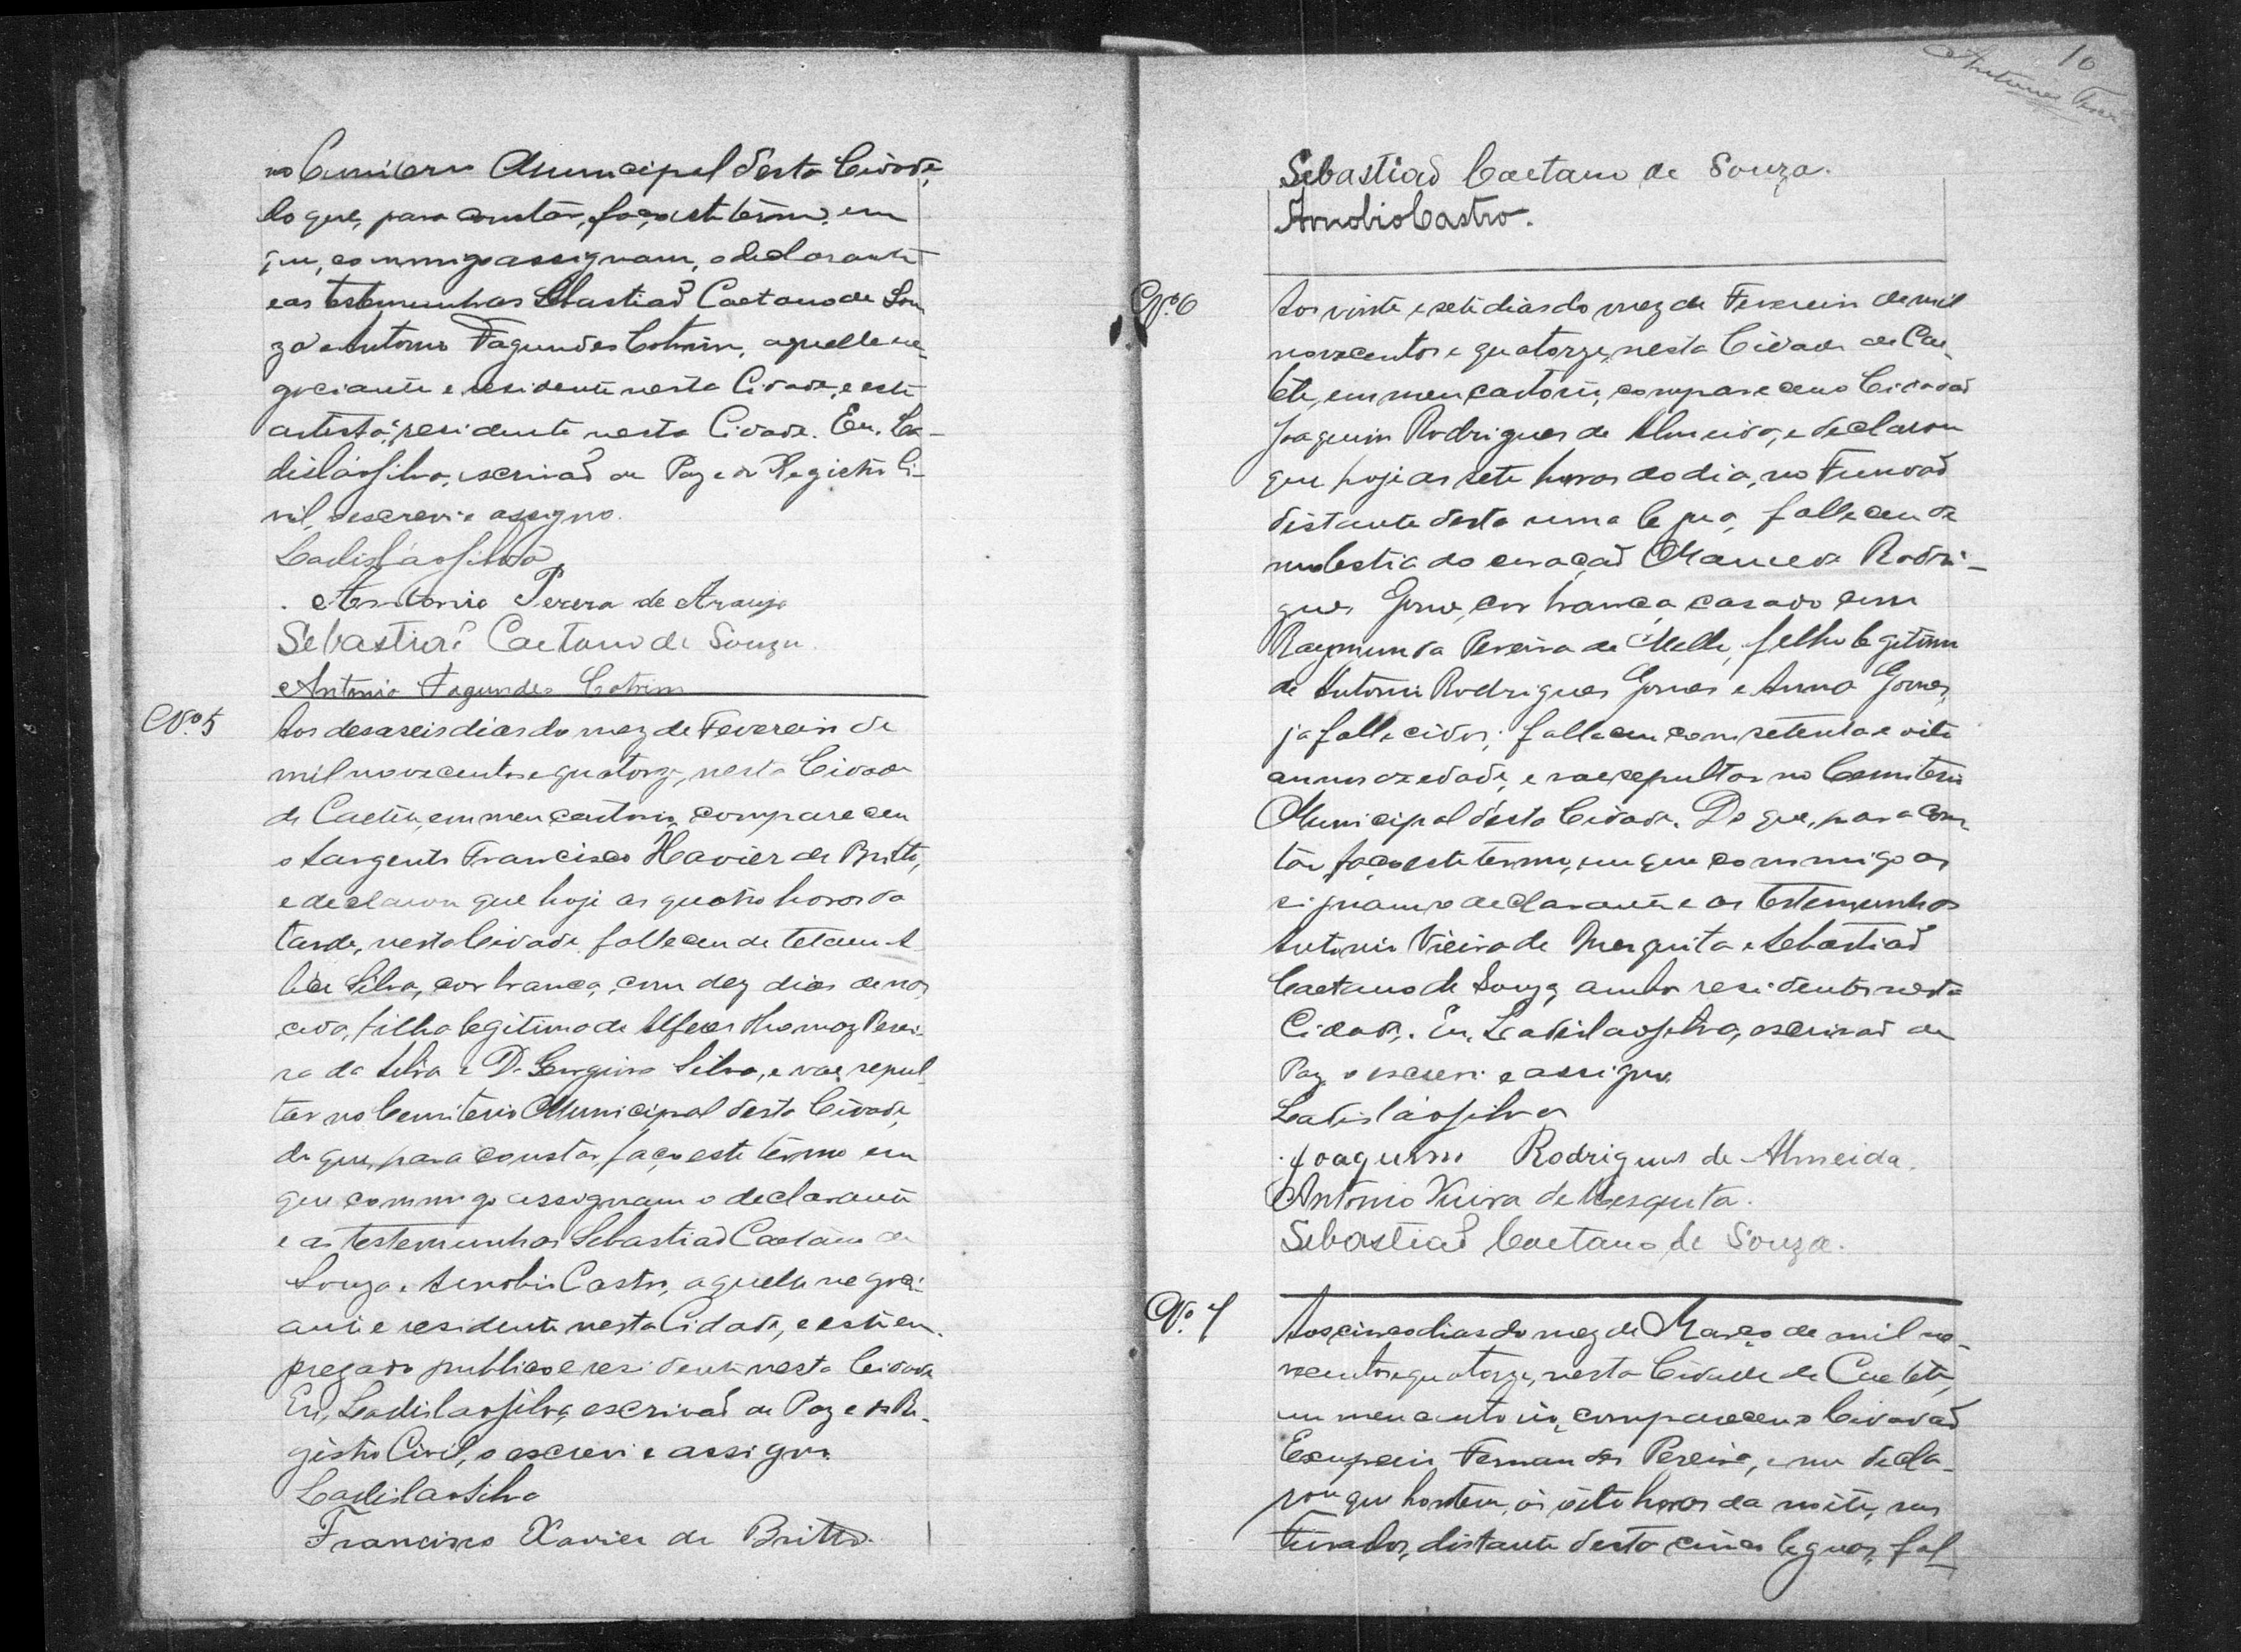 no Cemiterio Municipal desta Cidade,
do que, para constar, faço este termo, em
que, commigo assignam, o declarante
e as testemunhas Sebastião Caetano de Sou
za e Antonio Fagundes Cotrim, aquelle ne-
gociante e residente nesta Cidade, e este
artista, residente nesta Cidade. Eu, La-
disláo Silva, escrivão de Paz e do Registro Ci-
vil, o escrevi e assigno.
Ladisláo Silva
Antonio Perera de Araujo
Sebastião Caetano de Souza
Antonio Fagundes Cotrim
Nº 5
Aos desaseis dias do mez de Fevereiro de
mil novecentos e quatorze, nesta Cidade
de Caeteté, em meu cartorio, compareceu
o Sargento Francisco Xavier de Britto,
e declarou que hoje as quatro horas da
tarde, nesta Cidade, falleceu de tetano
Silva, cor branca, com dez dias de nas
cida, filha legitima do Alferes Thomaz Perei-
ra da Silva e D. Silva, e vae sepul-
tar no Cemiterio Municipal desta Cidade,
do que, para constar, faço este termo em
que commigo assignam o declarante
e as testemunhas Sebastião Caetano de
Souza e Arnobio Castro, aquelle negoci-
ante e residente nesta Cidade, e este em-
pregado publico e residente nesta Cidade
Eu, Ladisláo Silva, escrivão de Paz e do Re-
gistro Civil, o escrevi e assigno.
Ladisláo Silva
Francisco Xavier de Britto.
10
Sebastião Caetano de Souza.
Arnobio Castro.
Nº 6
Aos vinte e sete dias do mez de Fevereiro de mil
novecentos e quatorze, nesta Cidade de Cae-
teté, em meu cartorio, compareceu o Cidadão
Joaquim Rodrigues de Almeida, e declarou
que hoje as sete horas do dia, no Fundão
distante desta uma legua, falleceu de
molestia do coração Manuel Rodri-
gues Gomes, cor branca, casado com
Raymunda Pereira de Mello, filho legitimo
de Antonio Rodrigues Gomes e Anna Gomes,
ja fallecidos; falleceu com setenta e oito
annos de edade, e vae sepultar no Cemiterio
Municipal desta Cidade. Do que, para cons
tar, faço este termo, em que commigo as
signam o declarante e as testemunhas
Antonio Vieira de Mesquita e Sebastião
Caetano de Souza, ambos residentes nesta
Cidade. Eu, Ladisláo Silva, escrivão de
Paz, o escrevi e assigno.
Ladisláo Silva
Joaquim Rodrigues de Almeida.
Antonio Vieira de Mesquita.
Sebastião Caetano de Souza.
Nº 7
Aos cinco dias do mez de Março de mil no-
vecentos e quatorze, nesta Cidade de Caeteté,
em meu cartorio, compareceu o Cidadão
Exuperio Fernandes Pereira, e me decla-
rou que hontem, ás oito horas da noite, nos
distante desta cinco leguas, fal-